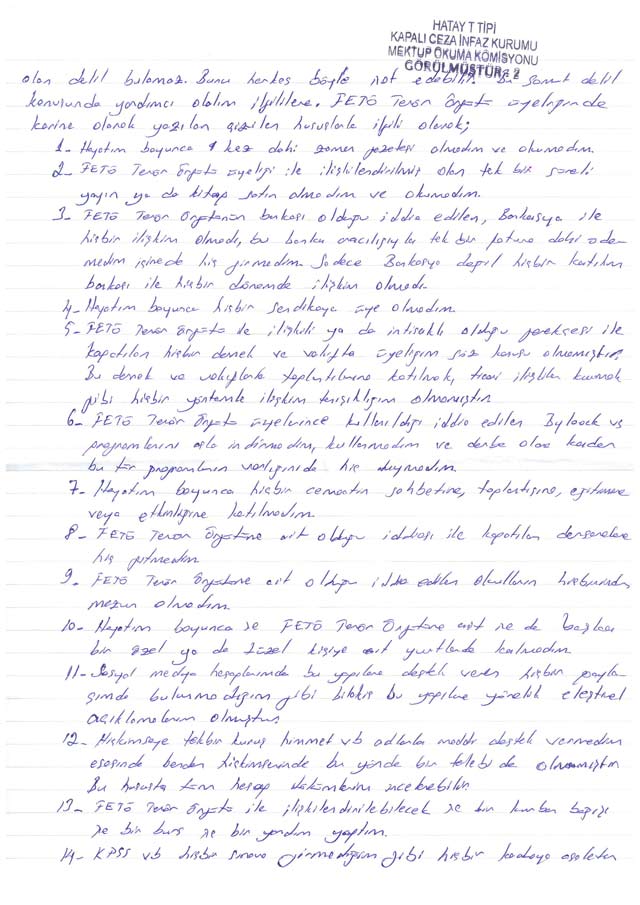 HATAY T TİPİ
KAPALI CEZA İNFAZ KURUMU
MEKTUP OKUMA KOMİSYONU
GÖRÜLMÜŞTÜR 2
olan delil bulamaz. Bunu herkes böyle not edebilir. Bu somut delil
konusunda yardımcı olalım ilgililere. FETÖ Terör Örgütü üyeliğinde
karine olarak yazılan çizilen hususlarla ilgili olarak;
1- Hayatım boyunca 1 kez dahi zaman gazetesi almadım ve okumadım.
2- FETÖ Terör Örgütü üyeliği ile ilişkilendirilmiş olan tek bir süreli
yayın ya da kitap satın almadım ve okumadım.
3- FETÖ Terör Örgütünün bankası olduğu iddia edilen, Bankasya ile
hiçbir ilişkim olmadı, bu banka aracılığıyla tek bir fatura dahi öde-
medim içine de hiç girmedim. Sadece Bankasya değil hiçbir katılım
bankası ile hiçbir dönemde ilişkim olmadı.
4- Hayatım boyunca hiçbir sendikaya üye olmadım.
5- FETÖ Terör Örgütü ile ilişkili ya da iltisaklı olduğu gerekçesi ile
kapatılan hiçbir dernek ve vakıfta üyeliğim söz konusu olmamıştır.
Bu dernek ve vakıflarla toplantılarına katılmak, ticari ilişkiler kurmak
gibi hiçbir yöntemle ilişkim olmamıştır
6- FETÖ Terör Örgütü üyelerince kullanıldığı iddia edilen Bylock vs
programlarını asla indirmedim, kullanmadım ve darbe olana kadar
bu tür programların varlığını da hiç duymadım.
7- Hayatım boyunca hiçbir cemaatin sohbetine, toplantısına, eğitimine
veya etkinliğine katılmadım.
8- FETÖ Terör Örgütüne ait olduğu iddiası ile kapatılan dersanelere
hiç gitmedim.
9- FETÖ Terör Örgütüne ait olduğu iddia edilen okulların hiçbirinden
mezun olmadım.
10- Hayatım boyunca ne FETÖ Terör Örgütüne ait ne de başka
bir özel ya da tüzel kişiye ait yurtlarda kalmadım.
11- Sosyal medya hesaplarımda bu yapılara destek veren hiçbir payla-
şımda bulunmadığım gibi bilakis bu yapılara yönelik eleştirel
açıklamalarım olmuştur.
12- Hiçkimseye tek bir kuruş himmet vb adlarla maddi destek vermedim
esasında benden hiçkimsenin de bu yönde bir talebi de olmamıştır
Bu hususta tüm hesap dökümlerim incelenebilir.
13- FETÖ Terör Örgütü ile ilişkilendirilebilecek ne bir kurban bağışı
ne bir burs ne bir yardım yaptım.
14- KPSS vb hiçbir sınava girmediğim gibi hiçbir kadroya asaleten